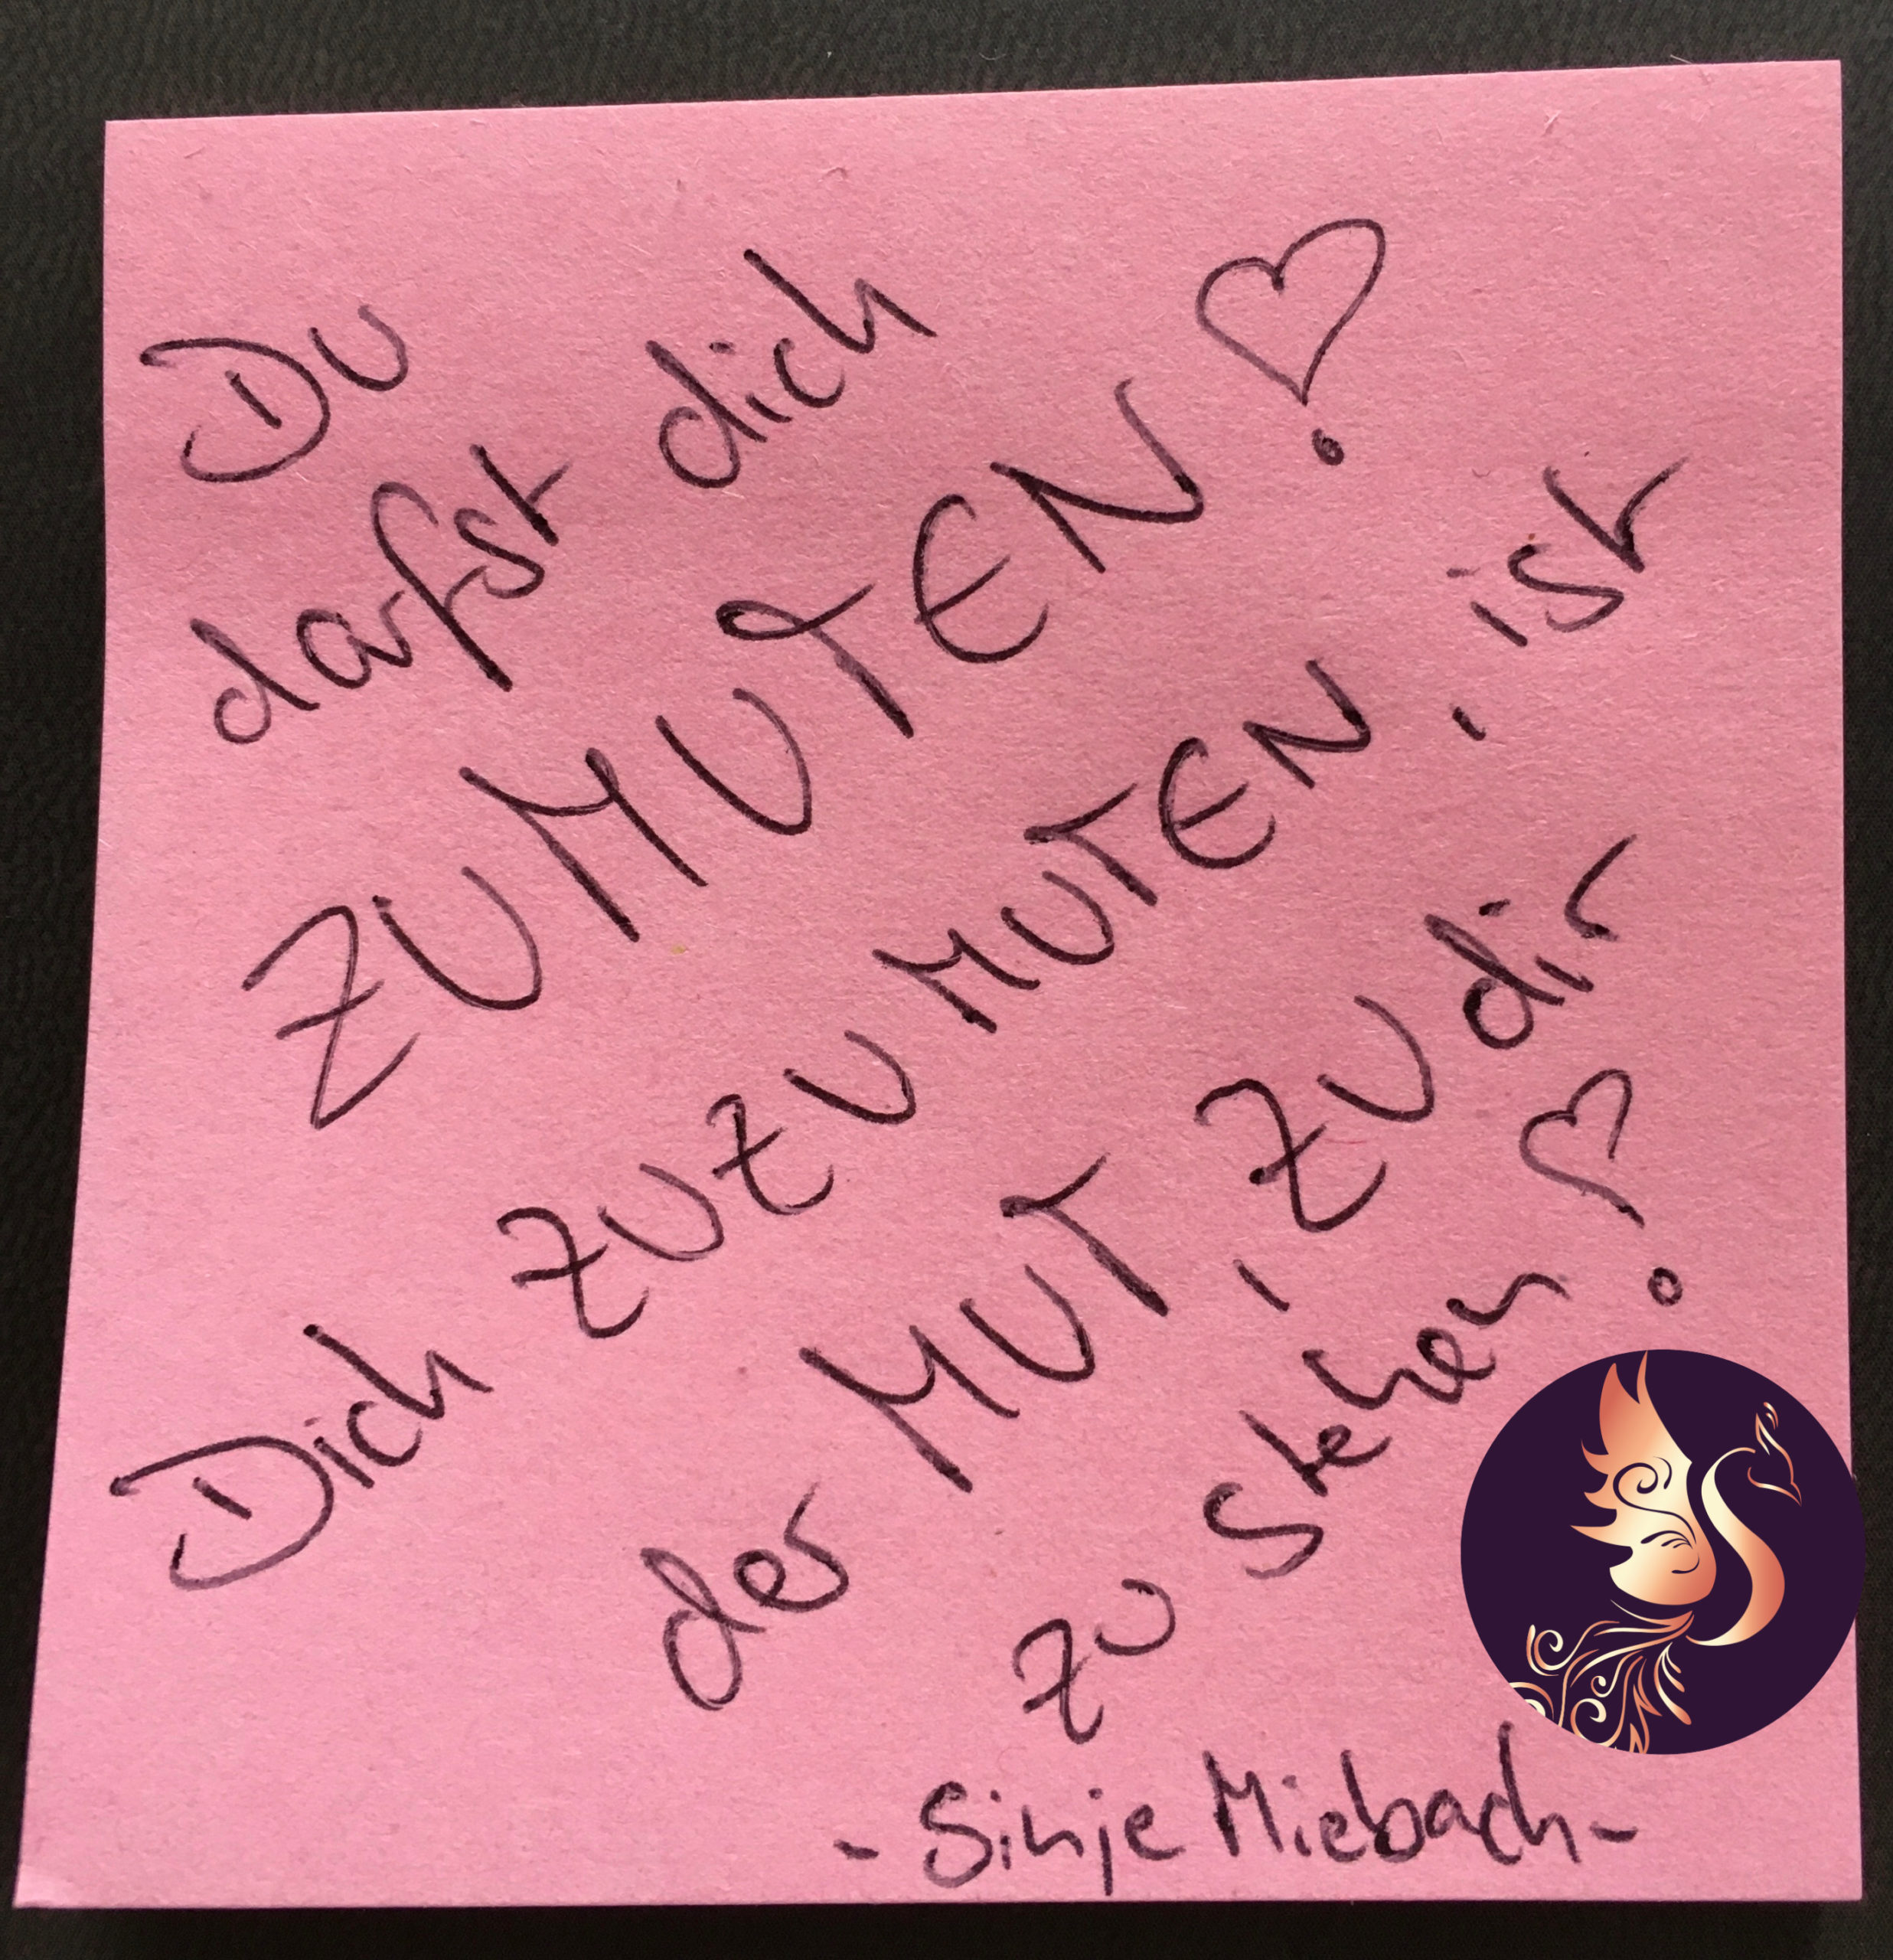 Du
darfst dich
ZUMUTEN
Dich ZUZUMUTEN, ist
der MUT, ZU dir
zu stehen
- Sinje Miebach -